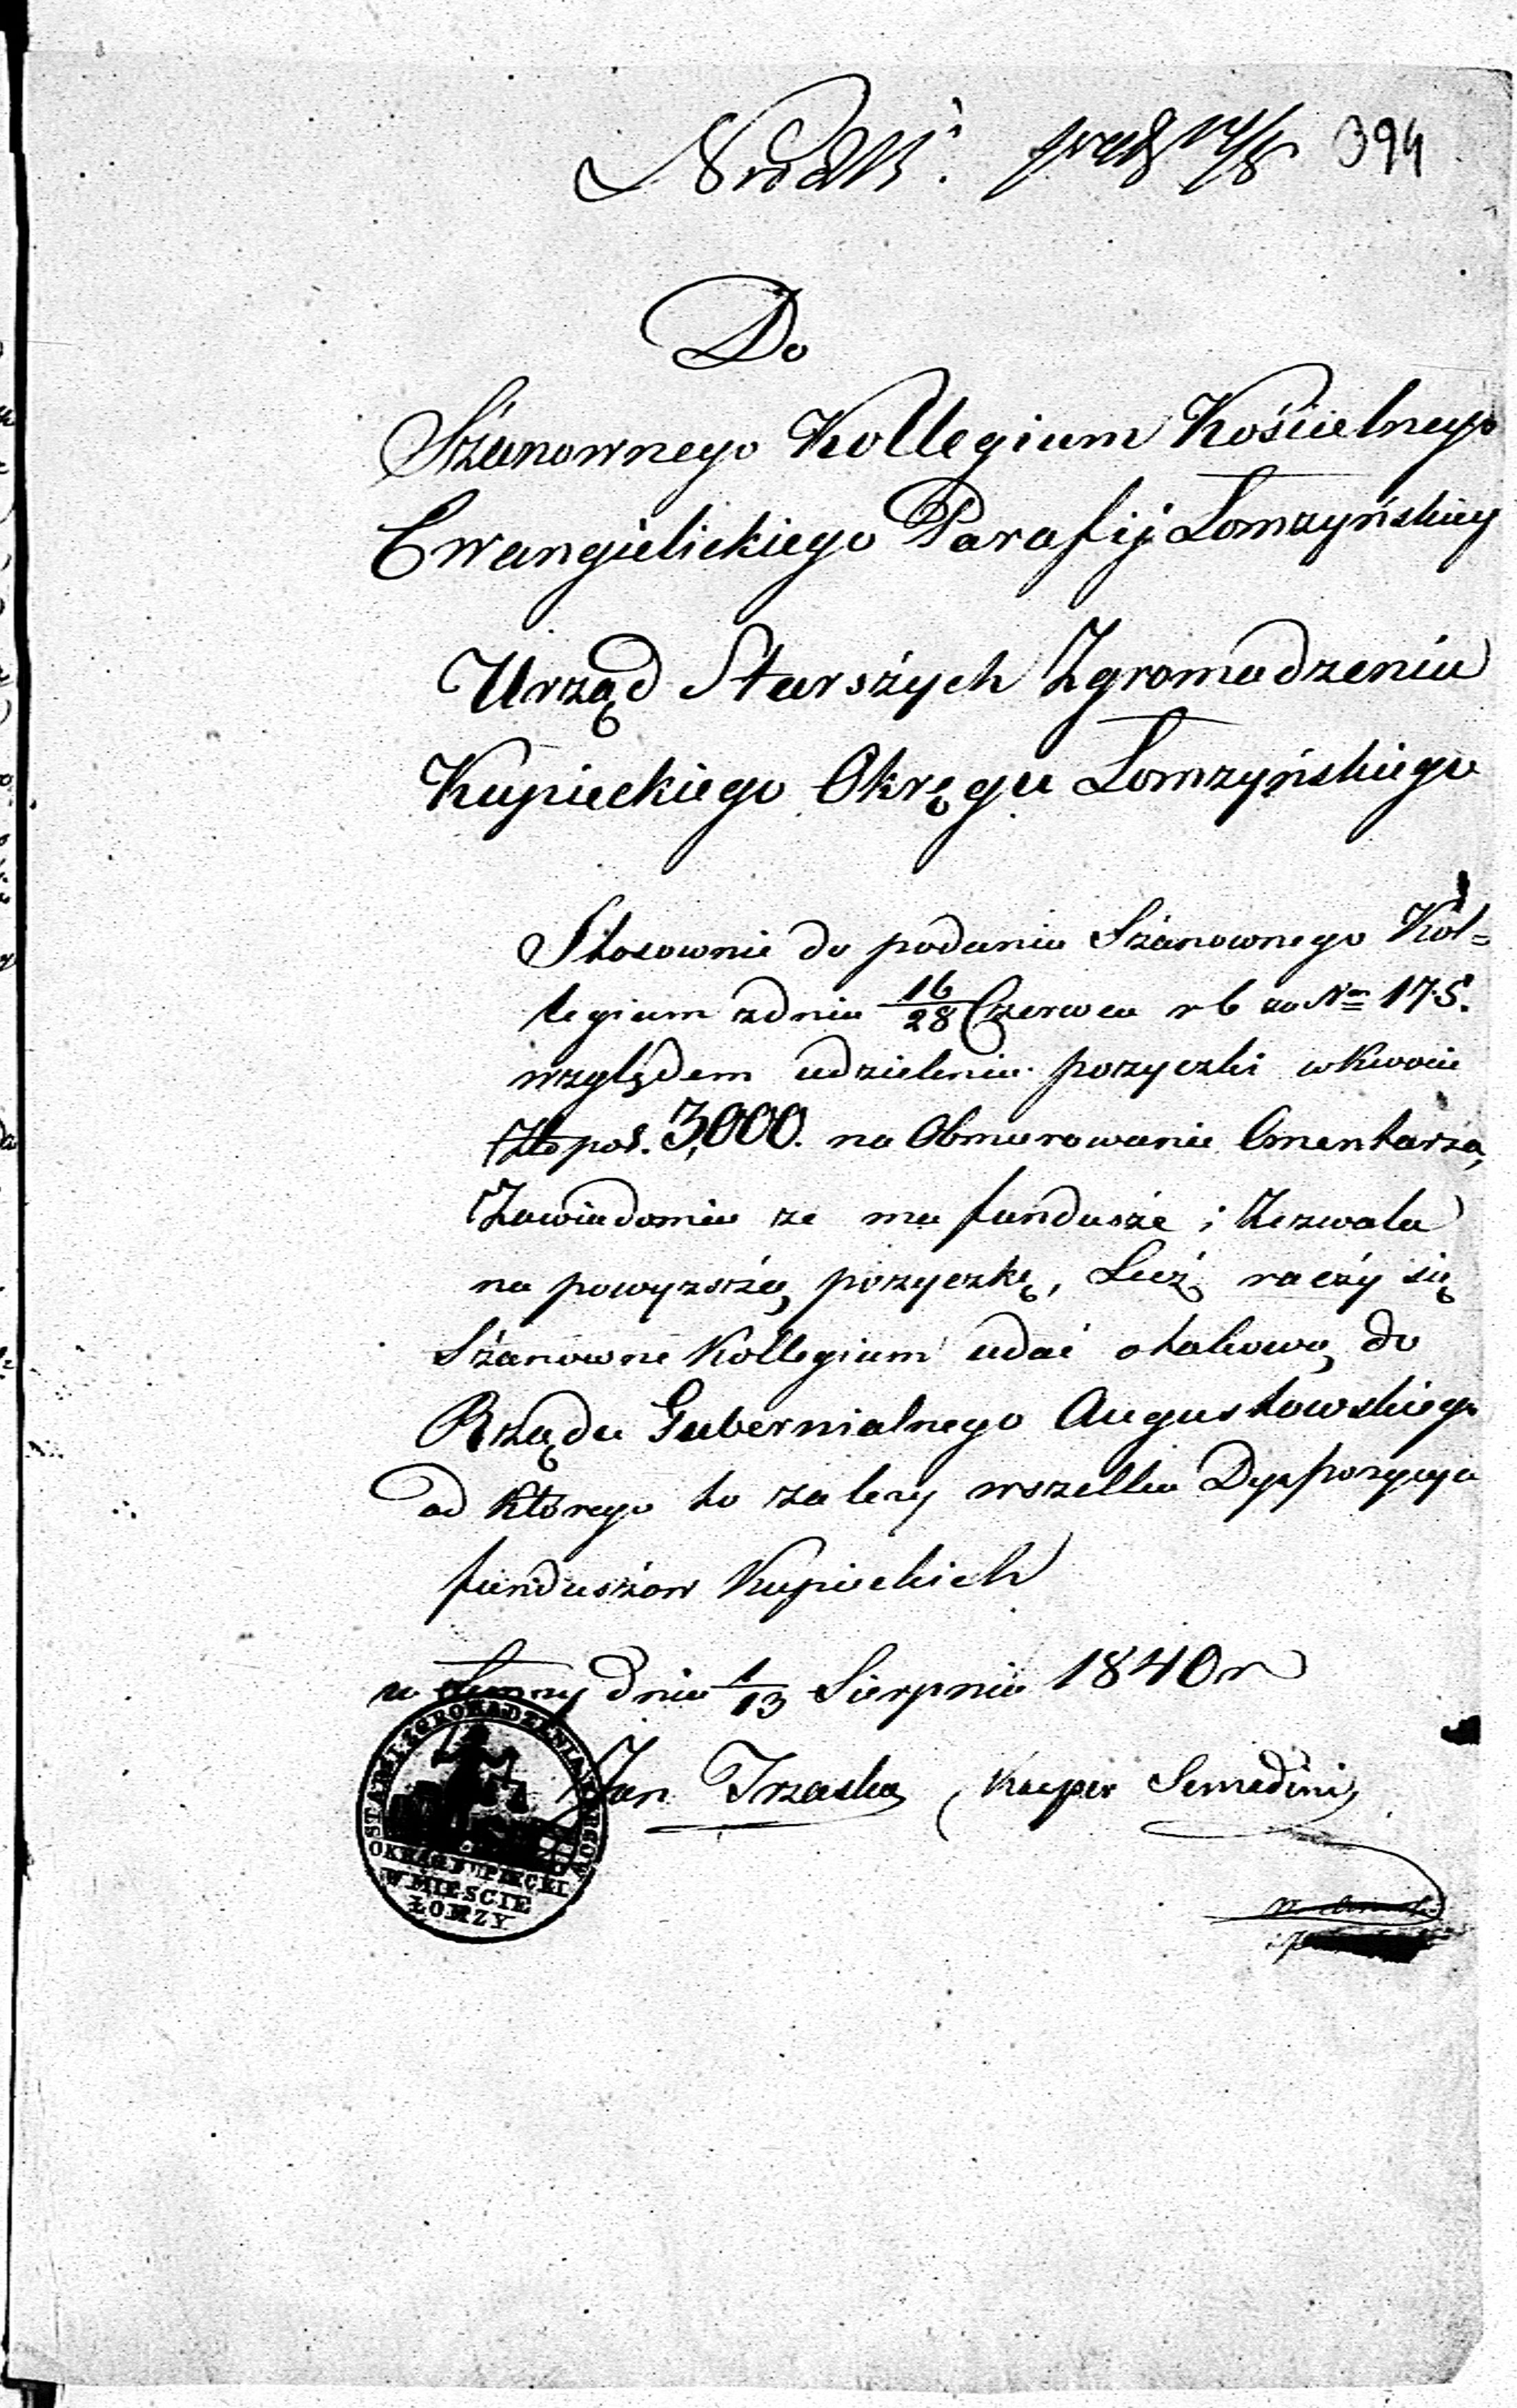 394
Do
Szanownego Kollegium Kościelnego
Ewangielickiego Parafij Łomzyńskiey
Urząd Starszych Zgromadzenia
Kupieckiego Okręgu Łomzyńskiego
Stosownie do podania Szanownego Kol=
legium z dnia 16/28 Czerwca r b za No 175.
względem udzielenia pozyczki w Kwocie
Złp pol. 3,000. na Obmurowanie Cmentarza,
Zawiadomia ze ma fundusze i Zezwala
na powyzszą pozyczkę, Lecz raczy się
Szanowne Kollegium udać o takową do
Rządu Gubernialnego Augustowskiego
od którego to zalezy wszelka Dyspozycya
funduszów Kupieckich
w Łomzy dnia 1/13 Sierpnia 1840 r
Jan Trzaska Kacper Semadini
STARSI ZGROMADZENIA KUPCÓW
OKRĘG KUPIECKI
W MIEŚCIE
ŁOMZY